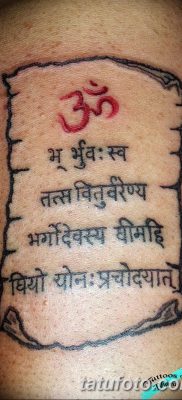 ॐ
भ् र्भुवः स्व
तत्स वितुर्वरेण्य
भर्गोदेवस्य धीमहि
धियो योनः प्रचोदयात्
Tattoos
tatufoto.com